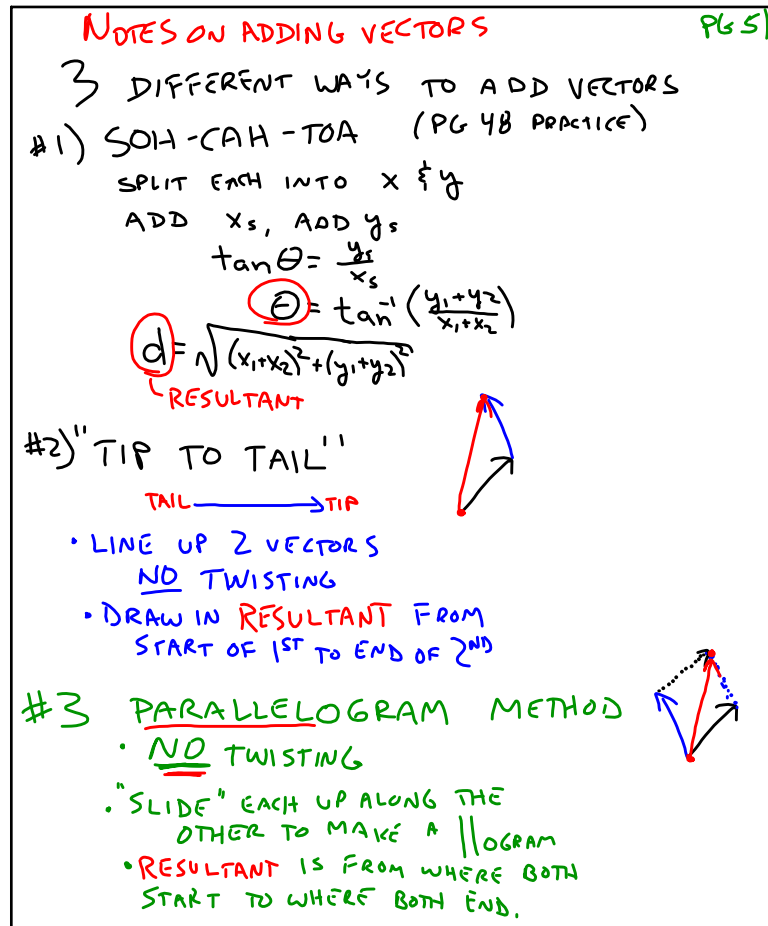 NOTES ON ADDING VECTORS PG 51
3 DIFFERENT WAYS TO ADD VECTORS
#1) SOH-CAH-TOA (PG 48 PRACTICE)
SPLIT EACH INTO X & y
ADD Xs, ADD ys
tan θ = ys/xs
θ = tan⁻¹ (y₁+y₂/x₁+x₂)
d = √(x₁+x₂)²+(y₁+y₂)²
RESULTANT
#2) "TIP TO TAIL"
TAIL → TIP
• LINE UP 2 VECTORS
NO TWISTING
• DRAW IN RESULTANT FROM
START OF 1ST TO END OF 2ND
#3 PARALLELOGRAM METHOD
• NO TWISTING
• "SLIDE" EACH UP ALONG THE
OTHER TO MAKE A ||OGRAM
• RESULTANT IS FROM WHERE BOTH
START TO WHERE BOTH END.